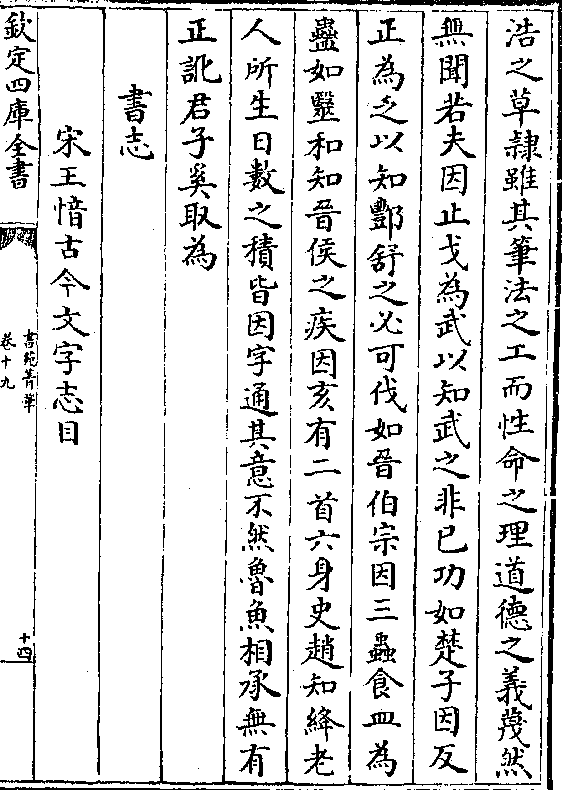 浩之草隸雖其筆法之工而性命之理道德之義蔑然
無聞若夫因止戈為武以知武之非已功如楚子因反
正為乏以知酆舒之必可伐如晉伯宗因三蟲食皿為
蠱如毉和知晉侯之疾因亥有二首六身史趙知絳老
人所生日數之積皆因字通其意不然魯魚相承無有
正訛君子奚取為
書志
宋王愔古今文字志目
欽定四庫全書
書苑菁華
卷十九
十四